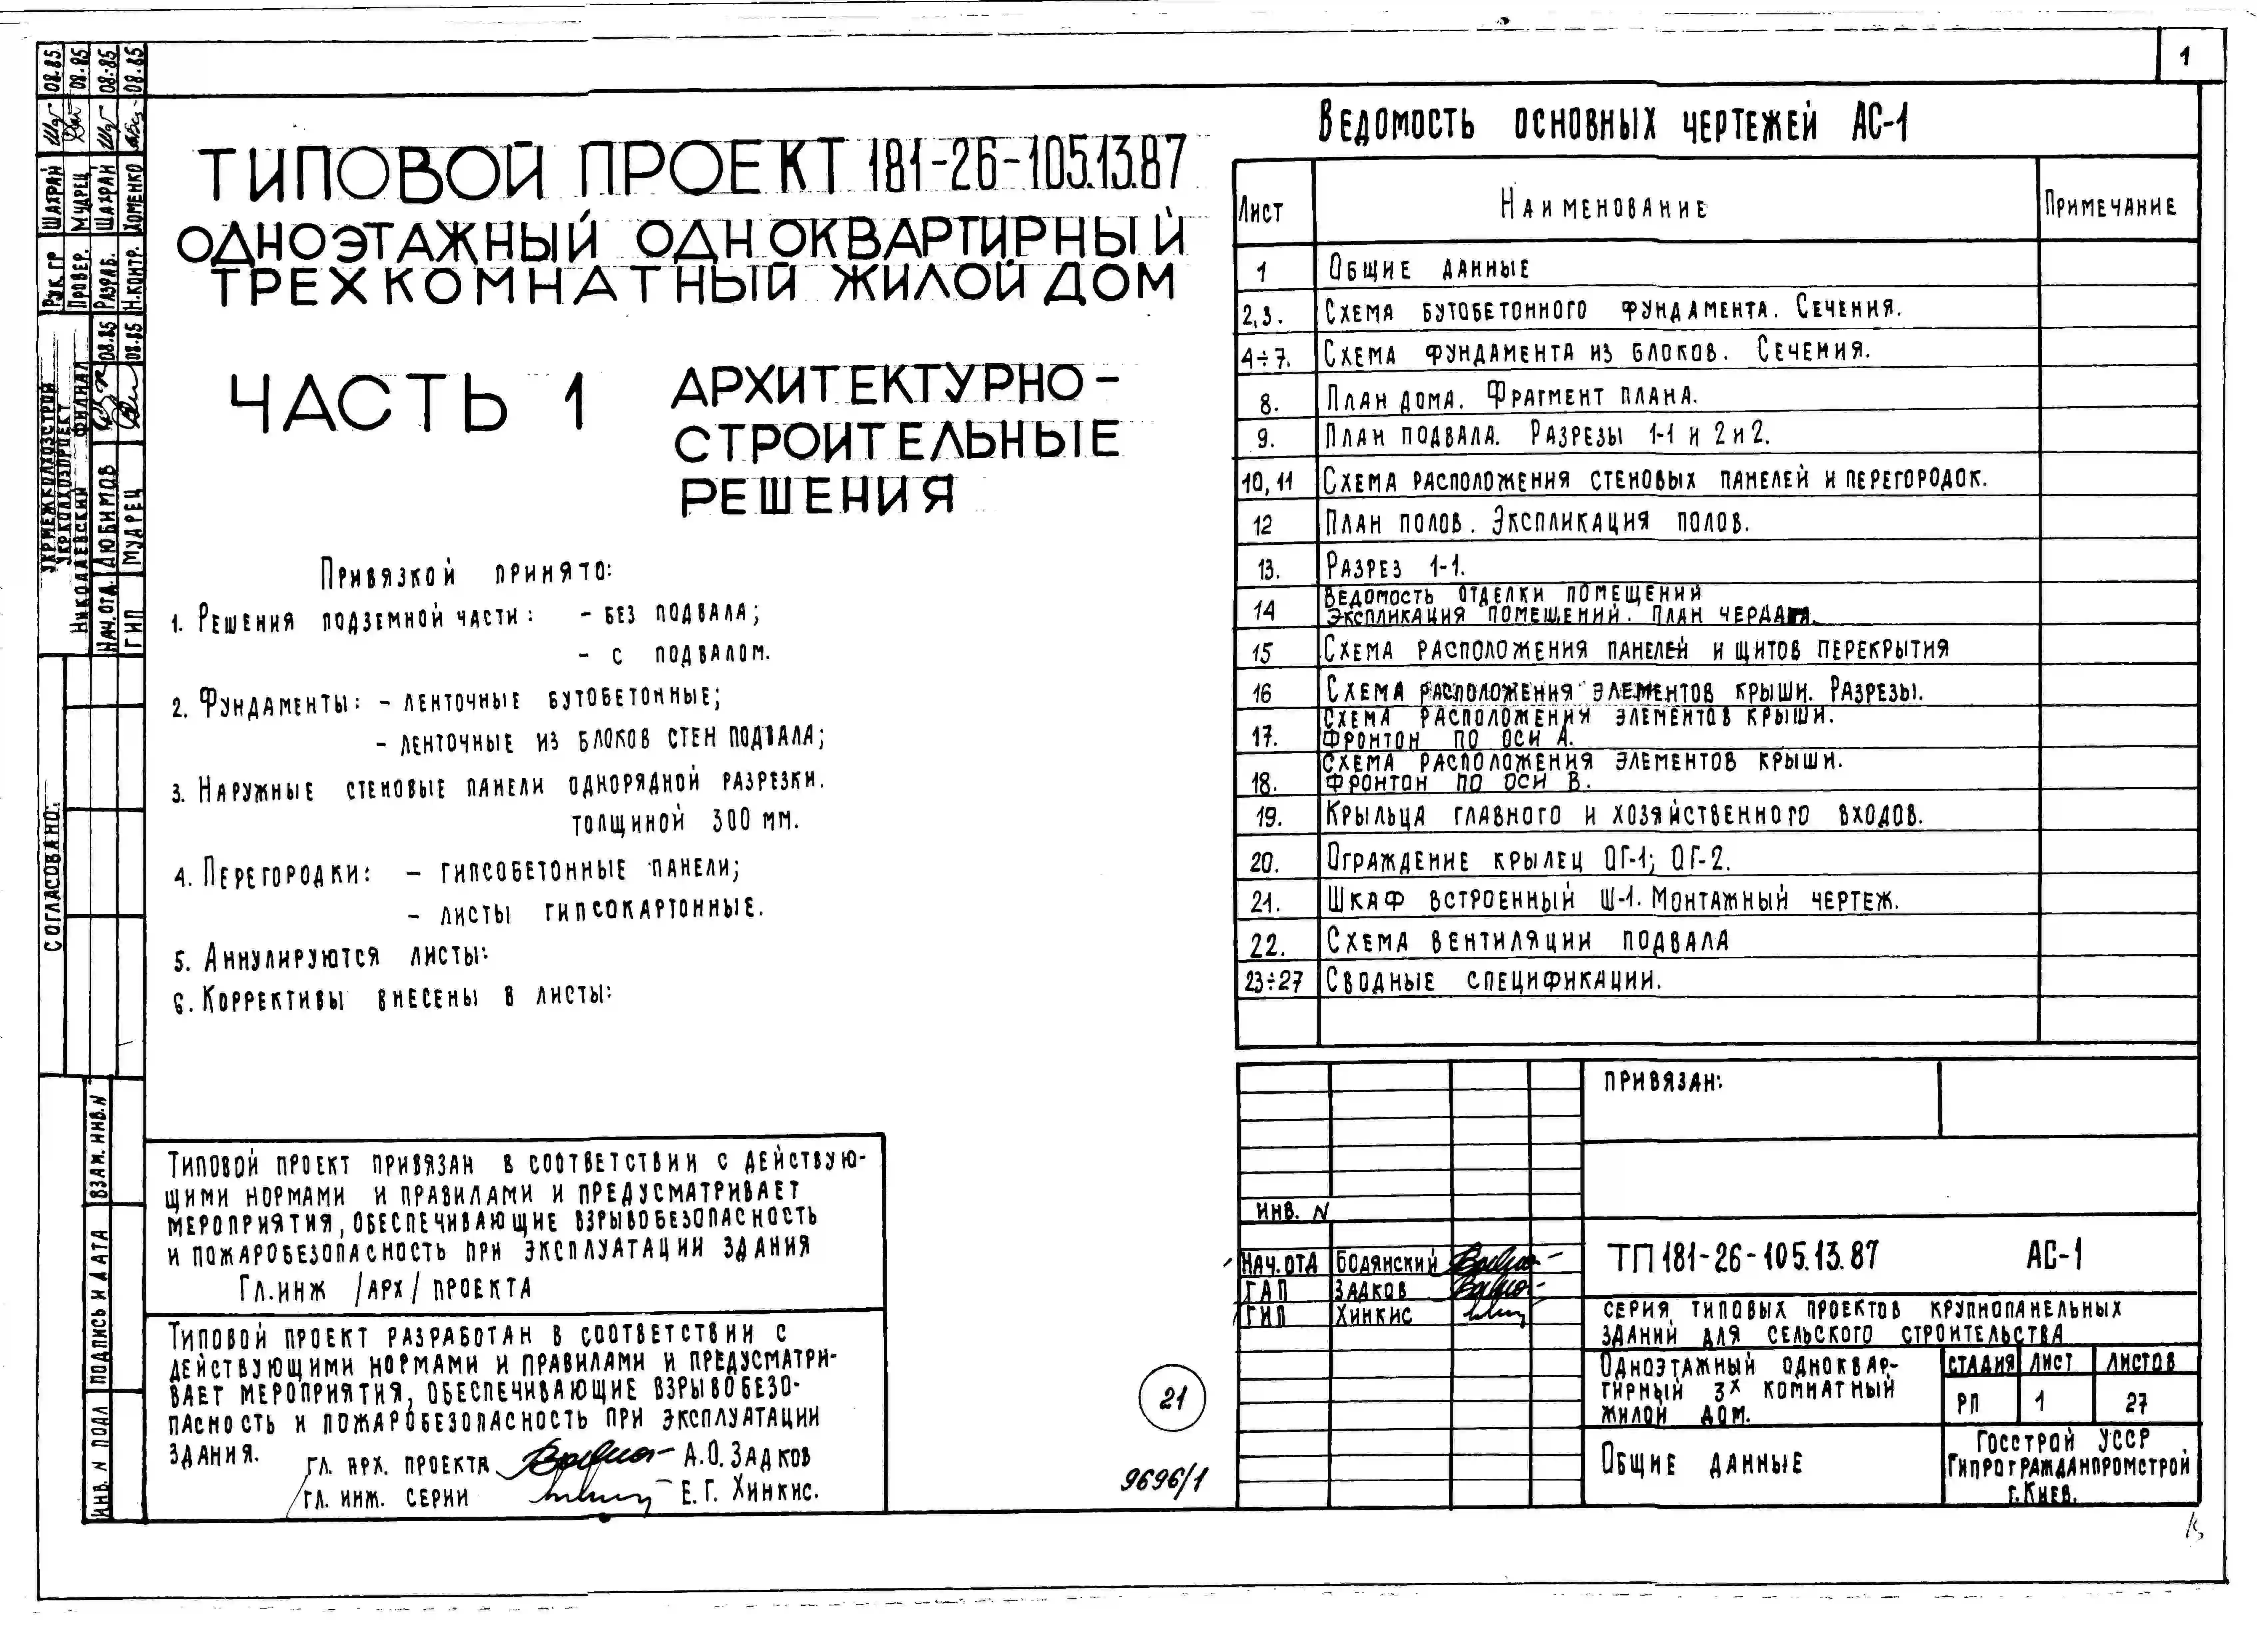 1
ТИПОВОЙ ПРОЕКТ 181-26-105.13.87
ОДНОЭТАЖНЫЙ ОДНОКВАРТИРНЫЙ
ТРЕХКОМНАТНЫЙ ЖИЛОЙ ДОМ
ЧАСТЬ 1 АРХИТЕКТУРНО-
СТРОИТЕЛЬНЫЕ
РЕШЕНИЯ
Привязкой принято:
1. Решения подземной части: - без подвала;
- с подвалом.
2. Фундаменты: - ленточные бутобетонные;
- ленточные из блоков стен подвала;
3. Наружные стеновые панели однорядной разрезки.
толщиной 300 мм.
4. Перегородки: - гипсобетонные панели;
- листы гипсокартонные.
5. Аннулируются листы:
6. Коррективы внесены в листы:
Типовой проект привязан в соответствии с действую-
щими нормами и правилами и предусматривает
мероприятия, обеспечивающие взрывобезопасность
и пожаробезопасность при эксплуатации здания
Гл.инж /арх/ проекта
Типовой проект разработан в соответствии с
действующими нормами и правилами и предусматри-
вает мероприятия, обеспечивающие взрывобезо-
пасность и пожаробезопасность при эксплуатации
здания.
гл. арх. проекта А.О. Задков
гл. инж. серии Е.Г. Хинкис.
21
9696/1
Ведомость основных чертежей АС-1
Лист Наименование Примечание
1 Общие данные
2,3. Схема бутобетонного фундамента. Сечения.
4÷7. Схема фундамента из блоков. Сечения.
8. План дома. Фрагмент плана.
9. План подвала. Разрезы 1-1 и 2и2.
10, 11 Схема расположения стеновых панелей и перегородок.
12 План полов. Экспликация полов.
13. Разрез 1-1.
14 Ведомость отделки помещений
Экспликация помещений. План чердака.
15 Схема расположения панелей и щитов перекрытия
16 Схема расположения элементов крыши. Разрезы.
17. Схема расположения элементов крыши.
Фронтон по оси А.
18. Схема расположения элементов крыши.
Фронтон по оси В.
19. Крыльца главного и хозяйственного входов.
20. Ограждение крылец ОГ-1; ОГ-2.
21. Шкаф встроенный Ш-1. Монтажный чертеж.
22. Схема вентиляции подвала
23÷27 Сводные спецификации.
привязан:
инв. N
Нач.отд Бодянский
ГАП Задков
ГИП Хинкис
ТП 181-26-105.13.87 АС-1
серия типовых проектов крупнопанельных
зданий для сельского строительства
Одноэтажный одноквар-
тирный 3х комнатный
жилой дом.
стадия лист листов
РП 1 27
Общие данные
Госстрой УССР
Гипрогражданпромстрой
г. Киев.
Рук. гр Шахран 08.85
Провер. Мударец 08.85
Разраб. Шахран 08.85
Н.контр. Хоменко 08.85
Укрмежколхозстрой
Укрколхозпроект
Николаевский филиал
Нач.отд. Любимов 08.85
ГИП Мударец 08.85
согласовано:
взам. инв. N
подпись и дата
инв. N подл